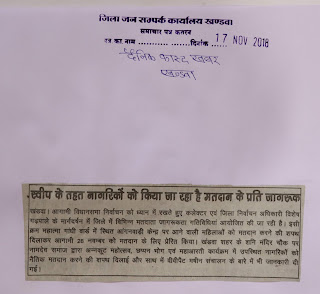 जिला जन सम्पर्क कार्यालय खण्डवा
समाचार पत्र कतरन
पत्र का नाम .................... दिनांक 17 NOV 2018
दैनिक फास्ट खबर
खण्डवा
स्वीप के तहत नागरिकों को किया जा रहा है मतदान के प्रति जागरूक
खंडवा। आगामी विधानसभा निर्वाचन को ध्यान में रखते हुए कलेक्टर एवं जिला निर्वाचन अधिकारी विशेष
गढ़पाले के मार्गदर्शन में जिले में विभिन्न मतदाता जागरूकता गतिविधियां आयोजित की जा रही है। इसी
क्रम महात्मा गांधी वार्ड में स्थित आंगनवाड़ी केन्द्र पर आने वाली महिलाओं को मतदान करने की शपथ
दिलाकर आगामी 28 नवम्बर को मतदान के लिए प्रेरित किया। खंडवा शहर के शनि मंदिर चौक पर
नामदेव समाज द्वारा अन्नकूट महोत्सव, छप्पन भोग एवं महाआरती कार्यक्रम में उपस्थित नागरिकों को
नैतिक मतदान करने की शपथ दिलाई और साथ में वीवीपैट मशीन संचालन के बारे में भी जानकारी दी
गई।